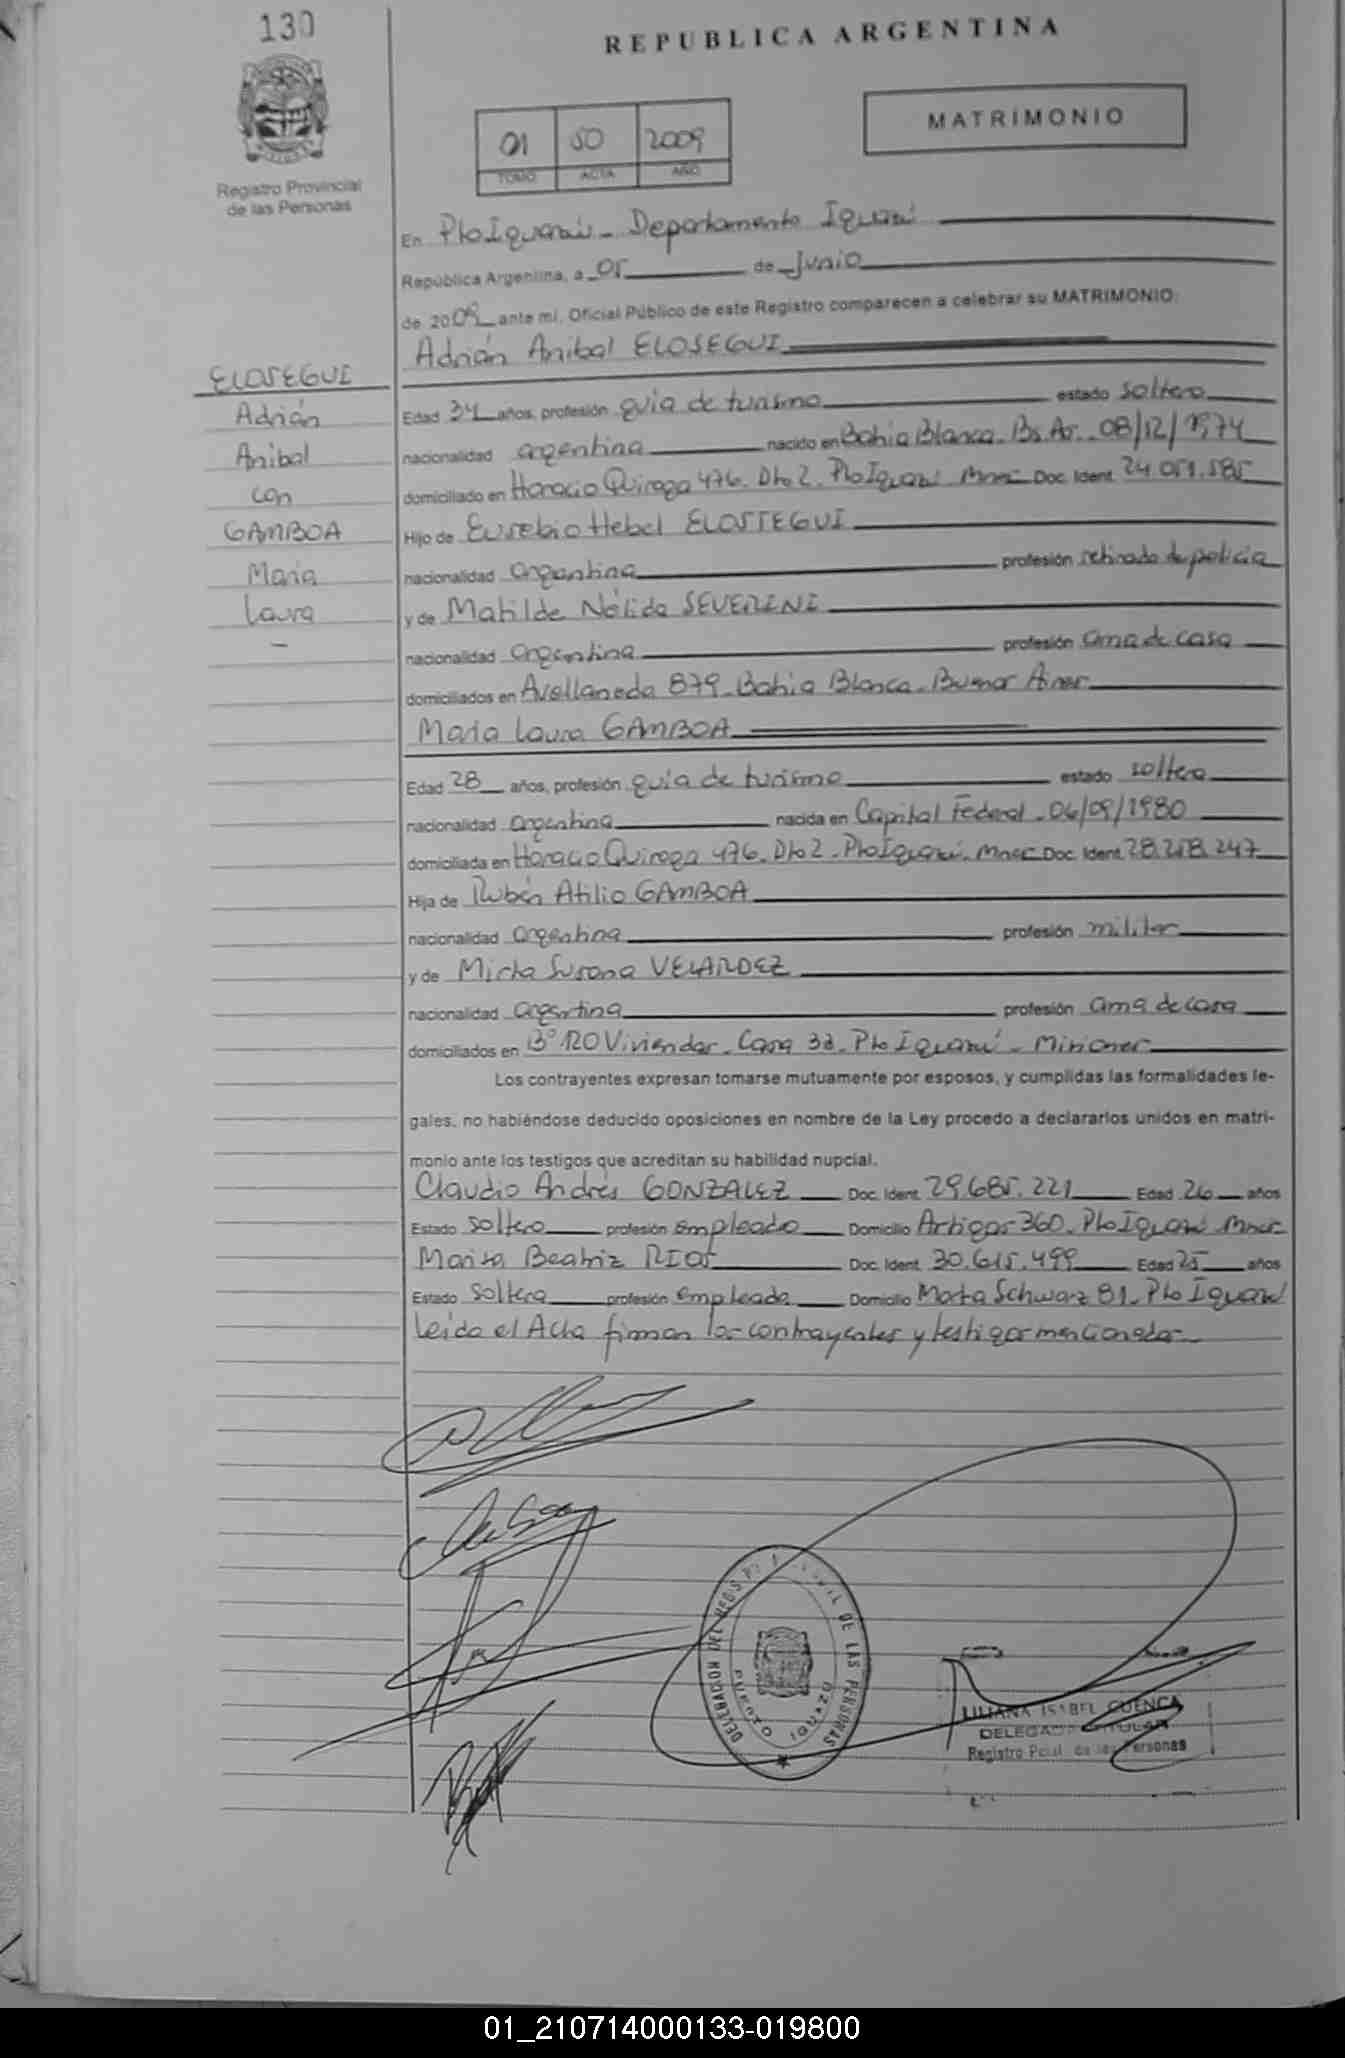 130
REPUBLICA ARGENTINA
01 50 2009
TOMO ACTA AÑO
MATRIMONIO
Registro Provincial
de las Personas
En Pto Iguazú - Departamento Iguazú
República Argentina, a 05 de Junio
de 2009 ante mi, Oficial Público de este Registro comparecen a celebrar su MATRIMONIO:
Adrián Anibal ELOSEGUI
ELOSEGUI
Adrián
Anibal
con
GAMBOA
María
Laura
-
Edad 34 años, profesión guía de turismo estado soltero
nacionalidad argentina nacido en Bahía Blanca - Bs. As. 08/12/1974
domiciliado en Horacio Quiroga 476. Dto 2. Pto Iguazú Mnes Doc. Ident. 24.051.585
Hijo de Eusebio Hebel ELOSTEGUI
nacionalidad argentina profesión retirado de policia
y de Matilde Nélida SEVERINI
nacionalidad argentina profesión ama de casa
domiciliados en Avellaneda 879 - Bahía Blanca - Buenos Aires
María Laura GAMBOA
Edad 28 años, profesión guía de turismo estado soltera
nacionalidad argentina nacida en Capital Federal - 06/09/1980
domiciliada en Horacio Quiroga 476. Dto 2 - Pto Iguazú - Mnes Doc. Ident. 28.258.247
Hija de Rubén Atilio GAMBOA
nacionalidad argentina profesión militar
y de Mirta Susana VELARDEZ
nacionalidad argentina profesión ama de casa
domiciliados en B° 120 Viviendas - Casa 32 - Pto Iguazú - Misiones
Los contrayentes expresan tomarse mutuamente por esposos, y cumplidas las formalidades le-
gales, no habiéndose deducido oposiciones en nombre de la Ley procedo a declararlos unidos en matri-
monio ante los testigos que acreditan su habilidad nupcial.
Claudio Andrés GONZALEZ Doc. Ident. 29.685.221 Edad 26 años
Estado soltero profesión empleado Domicilio Artigas 360 - Pto Iguazú Mnes
Marisa Beatriz RIOS Doc. Ident. 30.615.499 Edad 25 años
Estado soltera profesión empleada Domicilio Marta Schwarz 81 - Pto Iguazú
Leída el Acta firman los contrayentes y testigos mencionados
DELEGACION DEL REGIS DE LAS PERSONAS
PUERTO IGUAZU
LILIANA ISABEL CUENCA
DELEGADA TITULAR
Registro Pcial. de las Personas
01_210714000133-019800